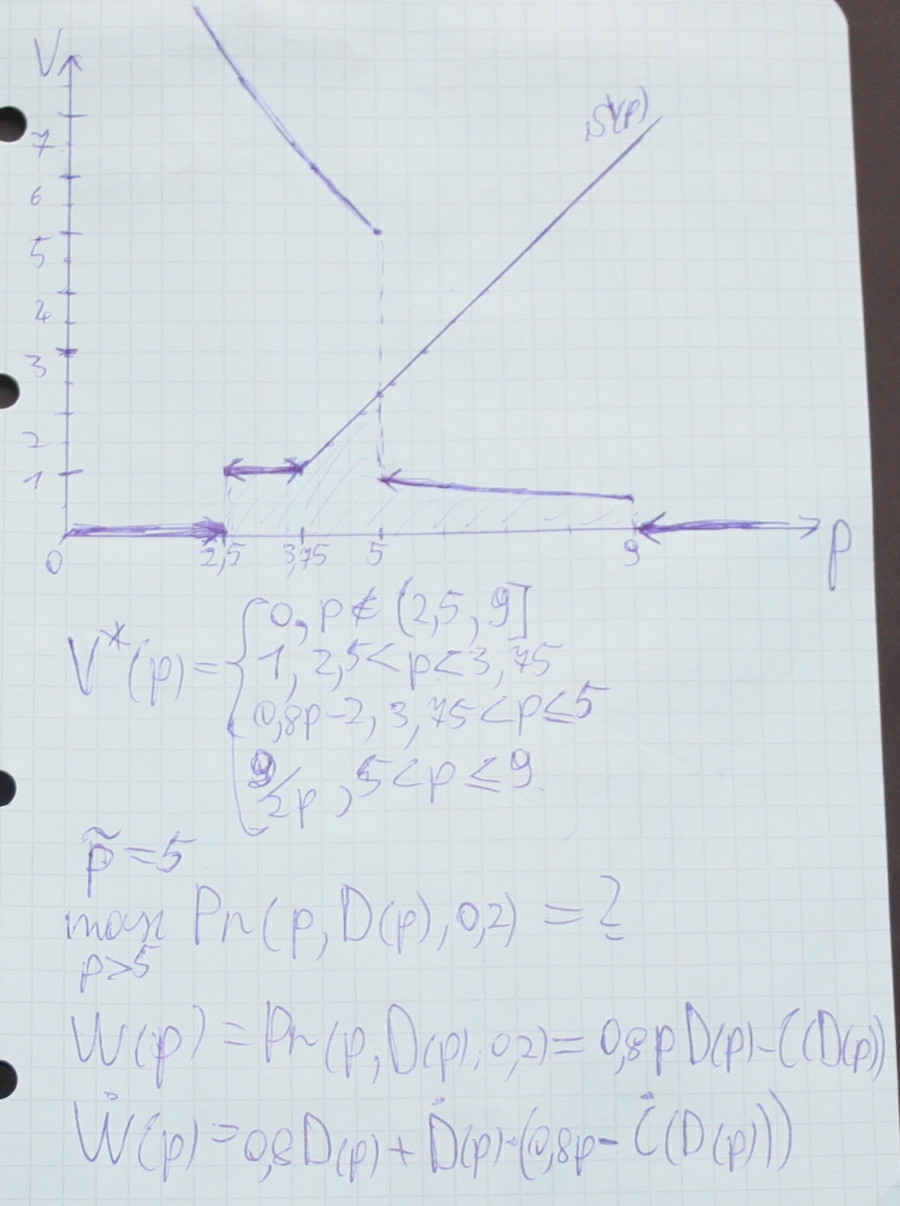 V
S(p)
7
6
5
4
3
2
1
0
2,5 3,75 5 9 p
V*(p) = { 0, p ∉ (2,5, 9]
1, 2,5 < p < 3,75
0,8p - 2, 3,75 < p ≤ 5
9/2p, 5 < p ≤ 9
p̃ = 5
max Pr(p, D(p), 0,2) = ?
p>5
W(p) = Pr(p, D(p), 0,2) = 0,8p D(p) - C(D(p))
Ẇ(p) = 0,8D(p) + Ḋ(p)·(0,8p - Ċ(D(p)))